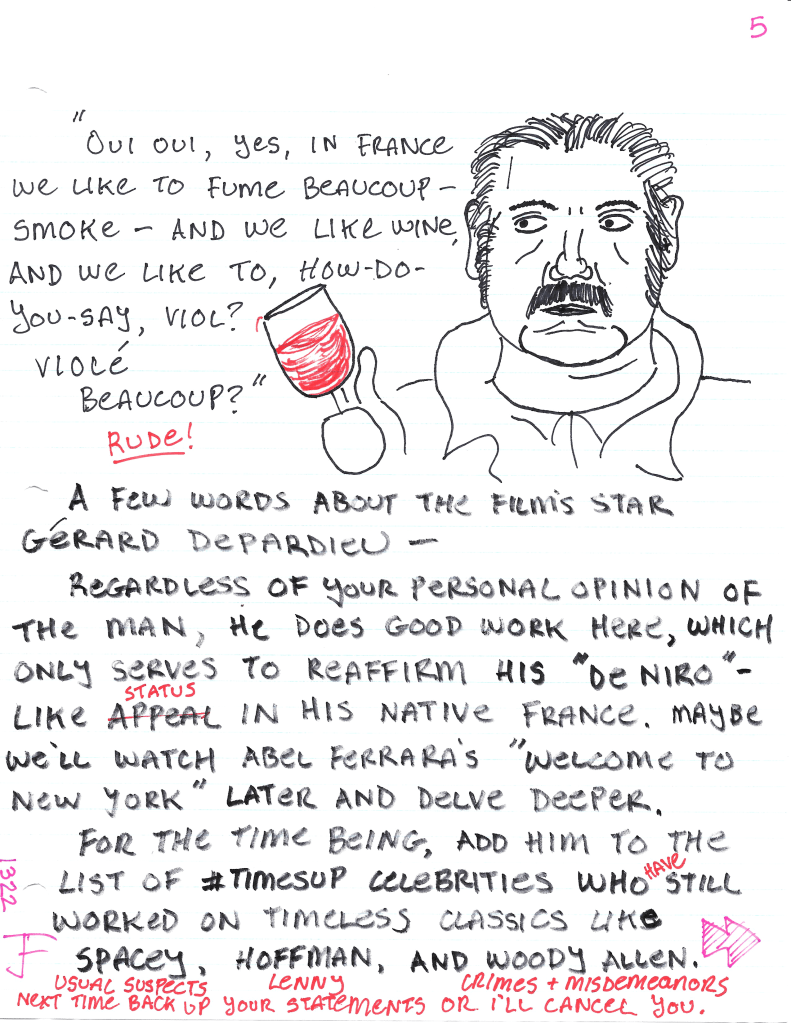 5
"OUI OUI, YES, IN FRANCE
WE LIKE TO FUME BEAUCOUP –
SMOKE – AND WE LIKE WINE,
AND WE LIKE TO, HOW-DO-
YOU-SAY, VIOL?
VIOLÉ
BEAUCOUP?"
RUDE!
A FEW WORDS ABOUT THE FILM'S STAR
GÉRARD DEPARDIEU –
REGARDLESS OF YOUR PERSONAL OPINION OF
THE MAN, HE DOES GOOD WORK HERE, WHICH
ONLY SERVES TO REAFFIRM HIS "DE NIRO"-
STATUS
LIKE APPEAL IN HIS NATIVE FRANCE. MAYBE
WE'LL WATCH ABEL FERRARA'S "WELCOME TO
NEW YORK" LATER AND DELVE DEEPER.
FOR THE TIME BEING, ADD HIM TO THE
LIST OF #TIMESUP CELEBRITIES WHO HAVE STILL
WORKED ON TIMELESS CLASSICS LIKE
SPACEY, HOFFMAN, AND WOODY ALLEN.
USUAL SUSPECTS LENNY CRIMES + MISDEMEANORS
NEXT TIME BACK UP YOUR STATEMENTS OR I'LL CANCEL YOU.
1322